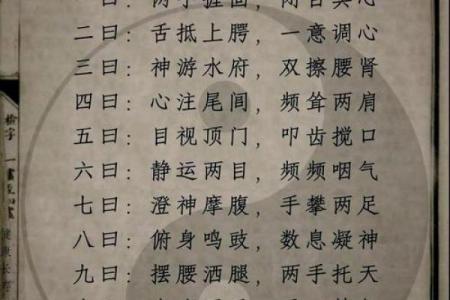 一曰：两手握固，闭目冥心
二曰：舌抵上腭，一意调心
三曰：神游水府，双擦腰肾
四曰：心注尾间，频耸两肩
五曰：目视顶门，叩齿搅口
六曰：静运两目，频频咽气
七曰：澄神摩腹，手攀两足
八曰：俯身鸣豉，数息凝神
九曰：摆腰洒腿，两手托天